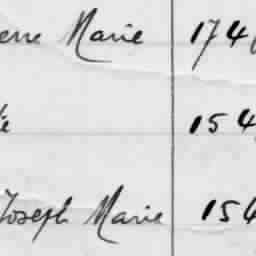 erre Marie 174
e 154
Joseph Marie 154